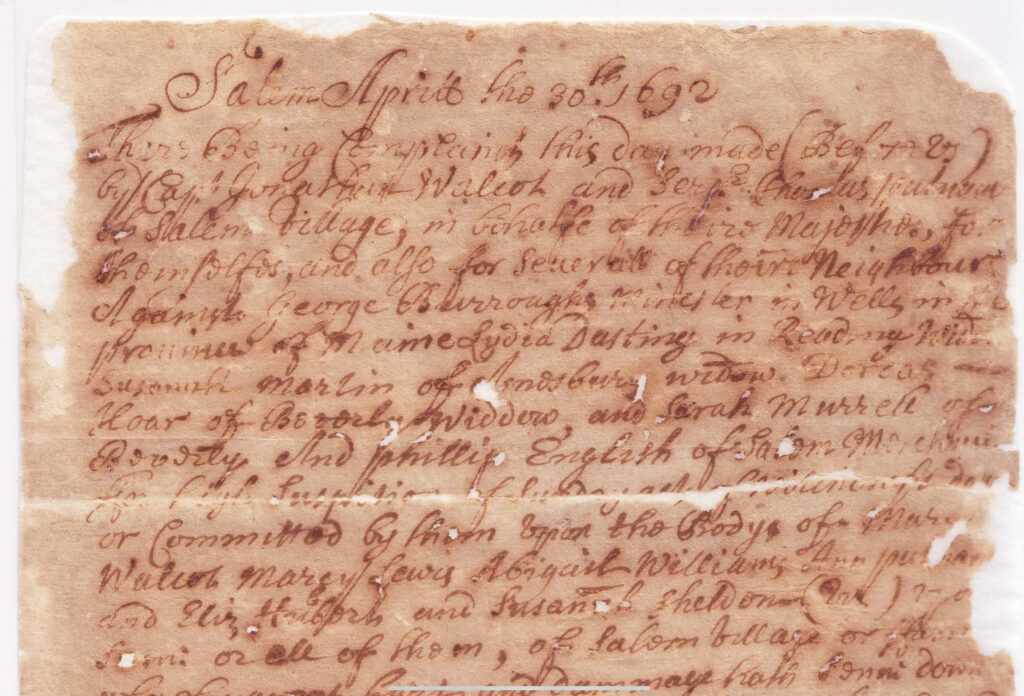 Salem Aprill the 30th 1692
There Being Complaint this day made (Before us)
by Capt Jonathan Walcot and Serjt Thomas putnam
of Salem Village, in behalfe of theire Majesties, for
themselfes, and also for Severall of theire Neighbours
Against George Burroughs Minester in Wells in the
province of Maine Lydia Dasting in Reading Widow
Susannah Martin of Amesbury widow Dorcas
Hoar of Beverly Widdow, and Sarah Murrell of
Beverly And phillip English of Salem Merchant
for high Suspition of Sundry acts of
or Committed by them upon the Bodys of Mary
Walcot Marcy Lewis Abigail Williams Ann putnam
and Eliz Hubbert and Susannah Sheldon (viz)
Some or all of them, of Salem Village or
hurt and dammage hath benne donne